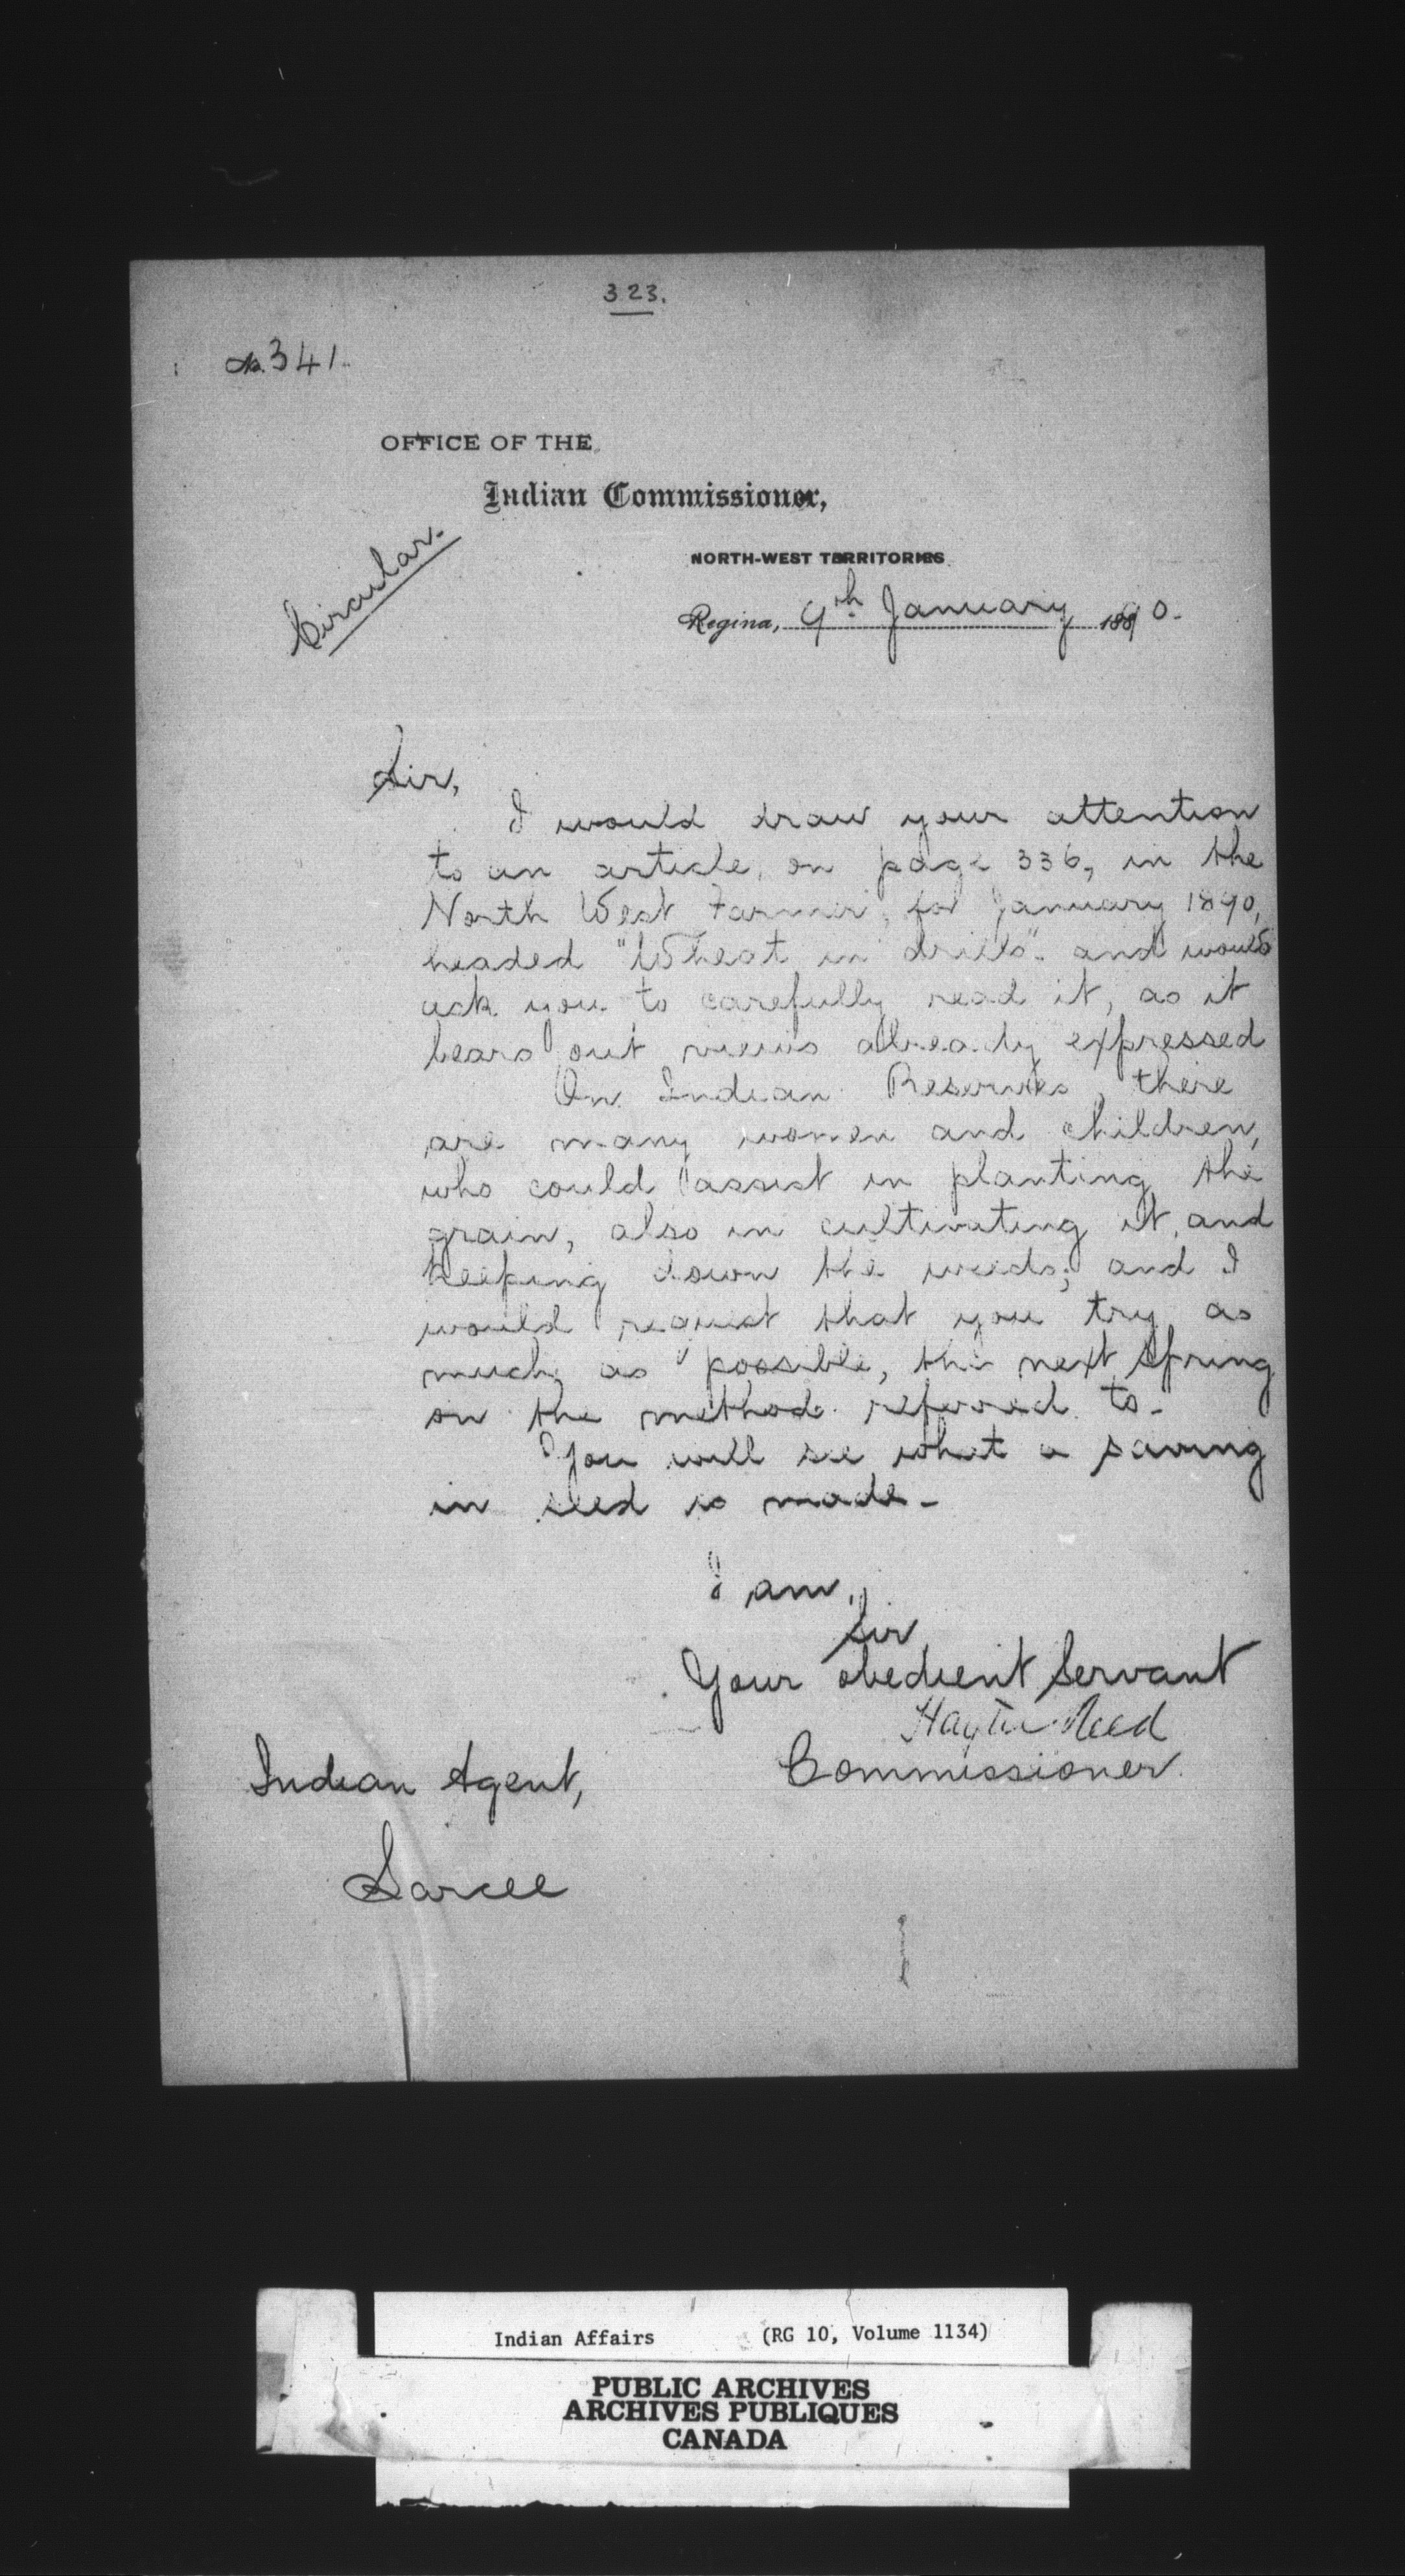 323.
No. 341.
OFFICE OF THE
Indian Commissioner,
NORTH-WEST TERRITORIES
Circular.
Regina, 9th January 1890.
Sir,
I would draw your attention
to an article, on page 336, in the
North West Farmer, for January 1890,
headed "Wheat in drills". and would
ask you to carefully read it, as it
bears out views already expressed
On Indian Reserves, there
are many women and children,
who could assist in planting the
grain, also in cultivating it, and
keeping down the weeds; and I
would request that you try as
much as possible, the next Spring
on the method referred to-
You will see what a saving
in seed is made-
I am,
Sir
Your obedient Servant
Hayter Reed
Commissioner.
Indian Agent,
Sarcee
Indian Affairs (RG 10, Volume 1134)
PUBLIC ARCHIVES
ARCHIVES PUBLIQUES
CANADA